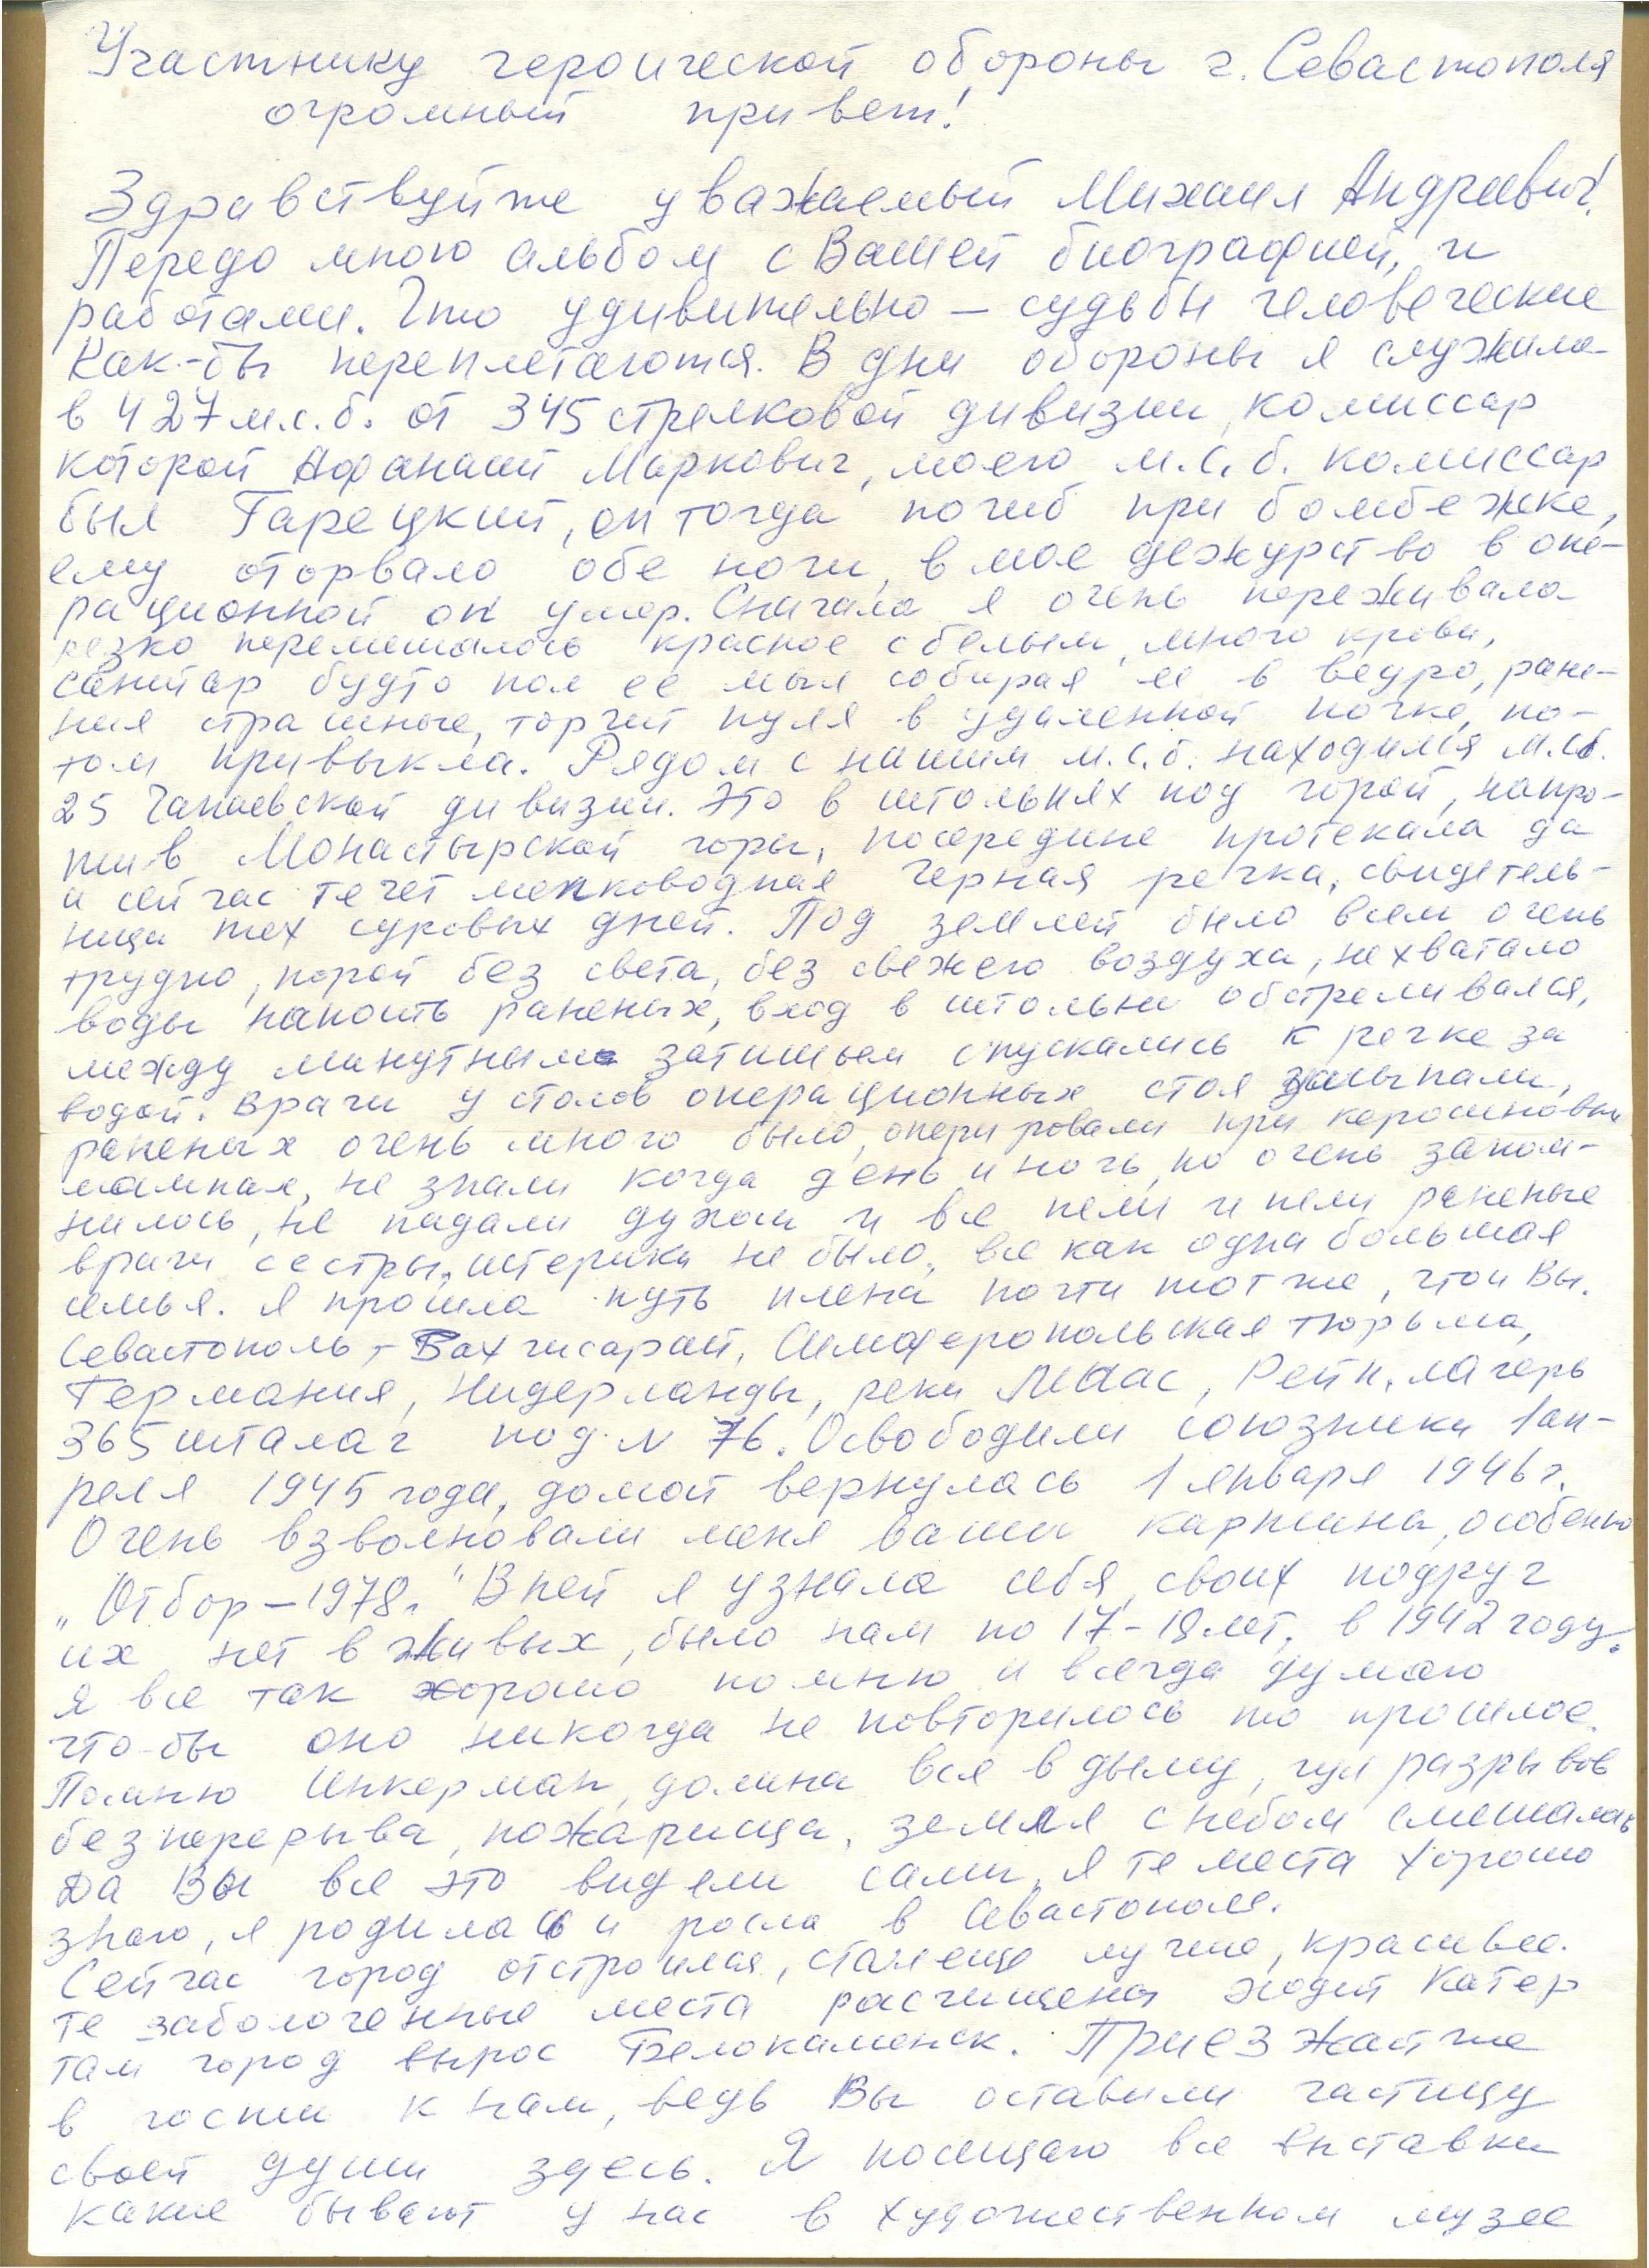 Участнику героической обороны г. Севастополя
огромный привет!
Здравствуйте уважаемый Михаил Андреевич!
Передо мною альбом с Вашей биографией, и
работами. Что удивительно – судьбы человеческие
как-бы переплетаются. В дни обороны я служила
в 427 м.с.б. от 345 стрелковой дивизии, комиссар
которой Афанасий Маркович, моего м.с.б. комиссар
был Гарецкий, он тогда погиб при бомбежке,
ему оторвало обе ноги, в мое дежурство в опе-
рационной он умер. Сначала я очень переживала
резко перемешалось красное с белым, много крови,
санитар будто пол ее мыл собирая ее в ведро, ране-
ния страшные, торчит пуля в удаленной почке, по-
том привыкла. Рядом с нашим м.с.б. находился м.сб.
25 Чапаевской дивизии. Это в штольнях под горой, напро-
тив Монастырской горы, посередине протекала да
и сейчас течет мелководная Черная речка, свидетель-
ница тех суровых дней. Под землей было всем очень
трудно, порой без света, без свежего воздуха, нехватало
воды напоить раненых, вход в штольни обстреливался,
между минутным затишьем спускались к речке за
водой. Врачи у столов операционных стоя засыпали,
раненых очень много было, оперировали при керосиновых
лампах, не знали когда день и ночь, но очень запом-
нилось, не падали духом и все пели и пели раненые
врачи сестры, истерики не было, все как одна большая
семья. Я прошла путь плена почти тот же, что и Вы.
Севастополь, – Бахчисарай, Симферопольская тюрьма,
Германия, Нидерланды, реки Маас, Рейн, лагерь
365 шталаг под N 76. Освободили союзники 1 ап-
реля 1945 года, домой вернулась 1 января 1946 г.
Очень взволновали меня ваши картина, особенно
„Отбор – 1978." В ней я узнала себя, своих подруг
их нет в живых, было нам по 17-18 лет, в 1942 году.
я все так хорошо помню и всегда думаю
что-бы оно никогда не повторилось то прошлое.
Помню Инкерман, долина вся в дыму, гул разрывов
без перерыва, пожарища, земля с небом смешалась
Да Вы все это видели сами, я те места хорошо
знаю, я родилась и росла в Севастополе.
Сейчас город отстроился, стал еще лучше, красивее.
те заболоченные места расчищены ходит катер
там город вырос Белокаменск. Приезжайте
в гости к нам, ведь Вы оставили частицу
своей души здесь. Я посещаю все выставки
какие бывают у нас в художественном музее